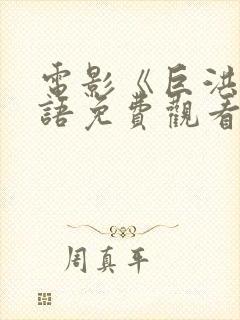 電影《巨洪
語免費觀看
周真平